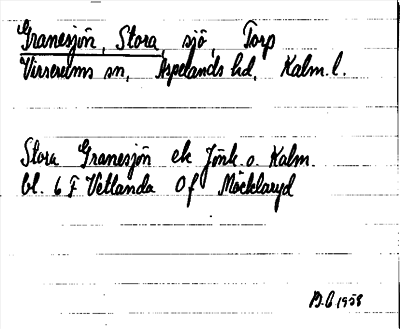 Granesjön, Stora, sjö, Torp
Virserums sn, Aspelands hd, Kalm. l.
Stora Granesjön ek Jönk. o. Kalm.
bl. 6 F Vetlanda 0 f Möcklaryd
1958